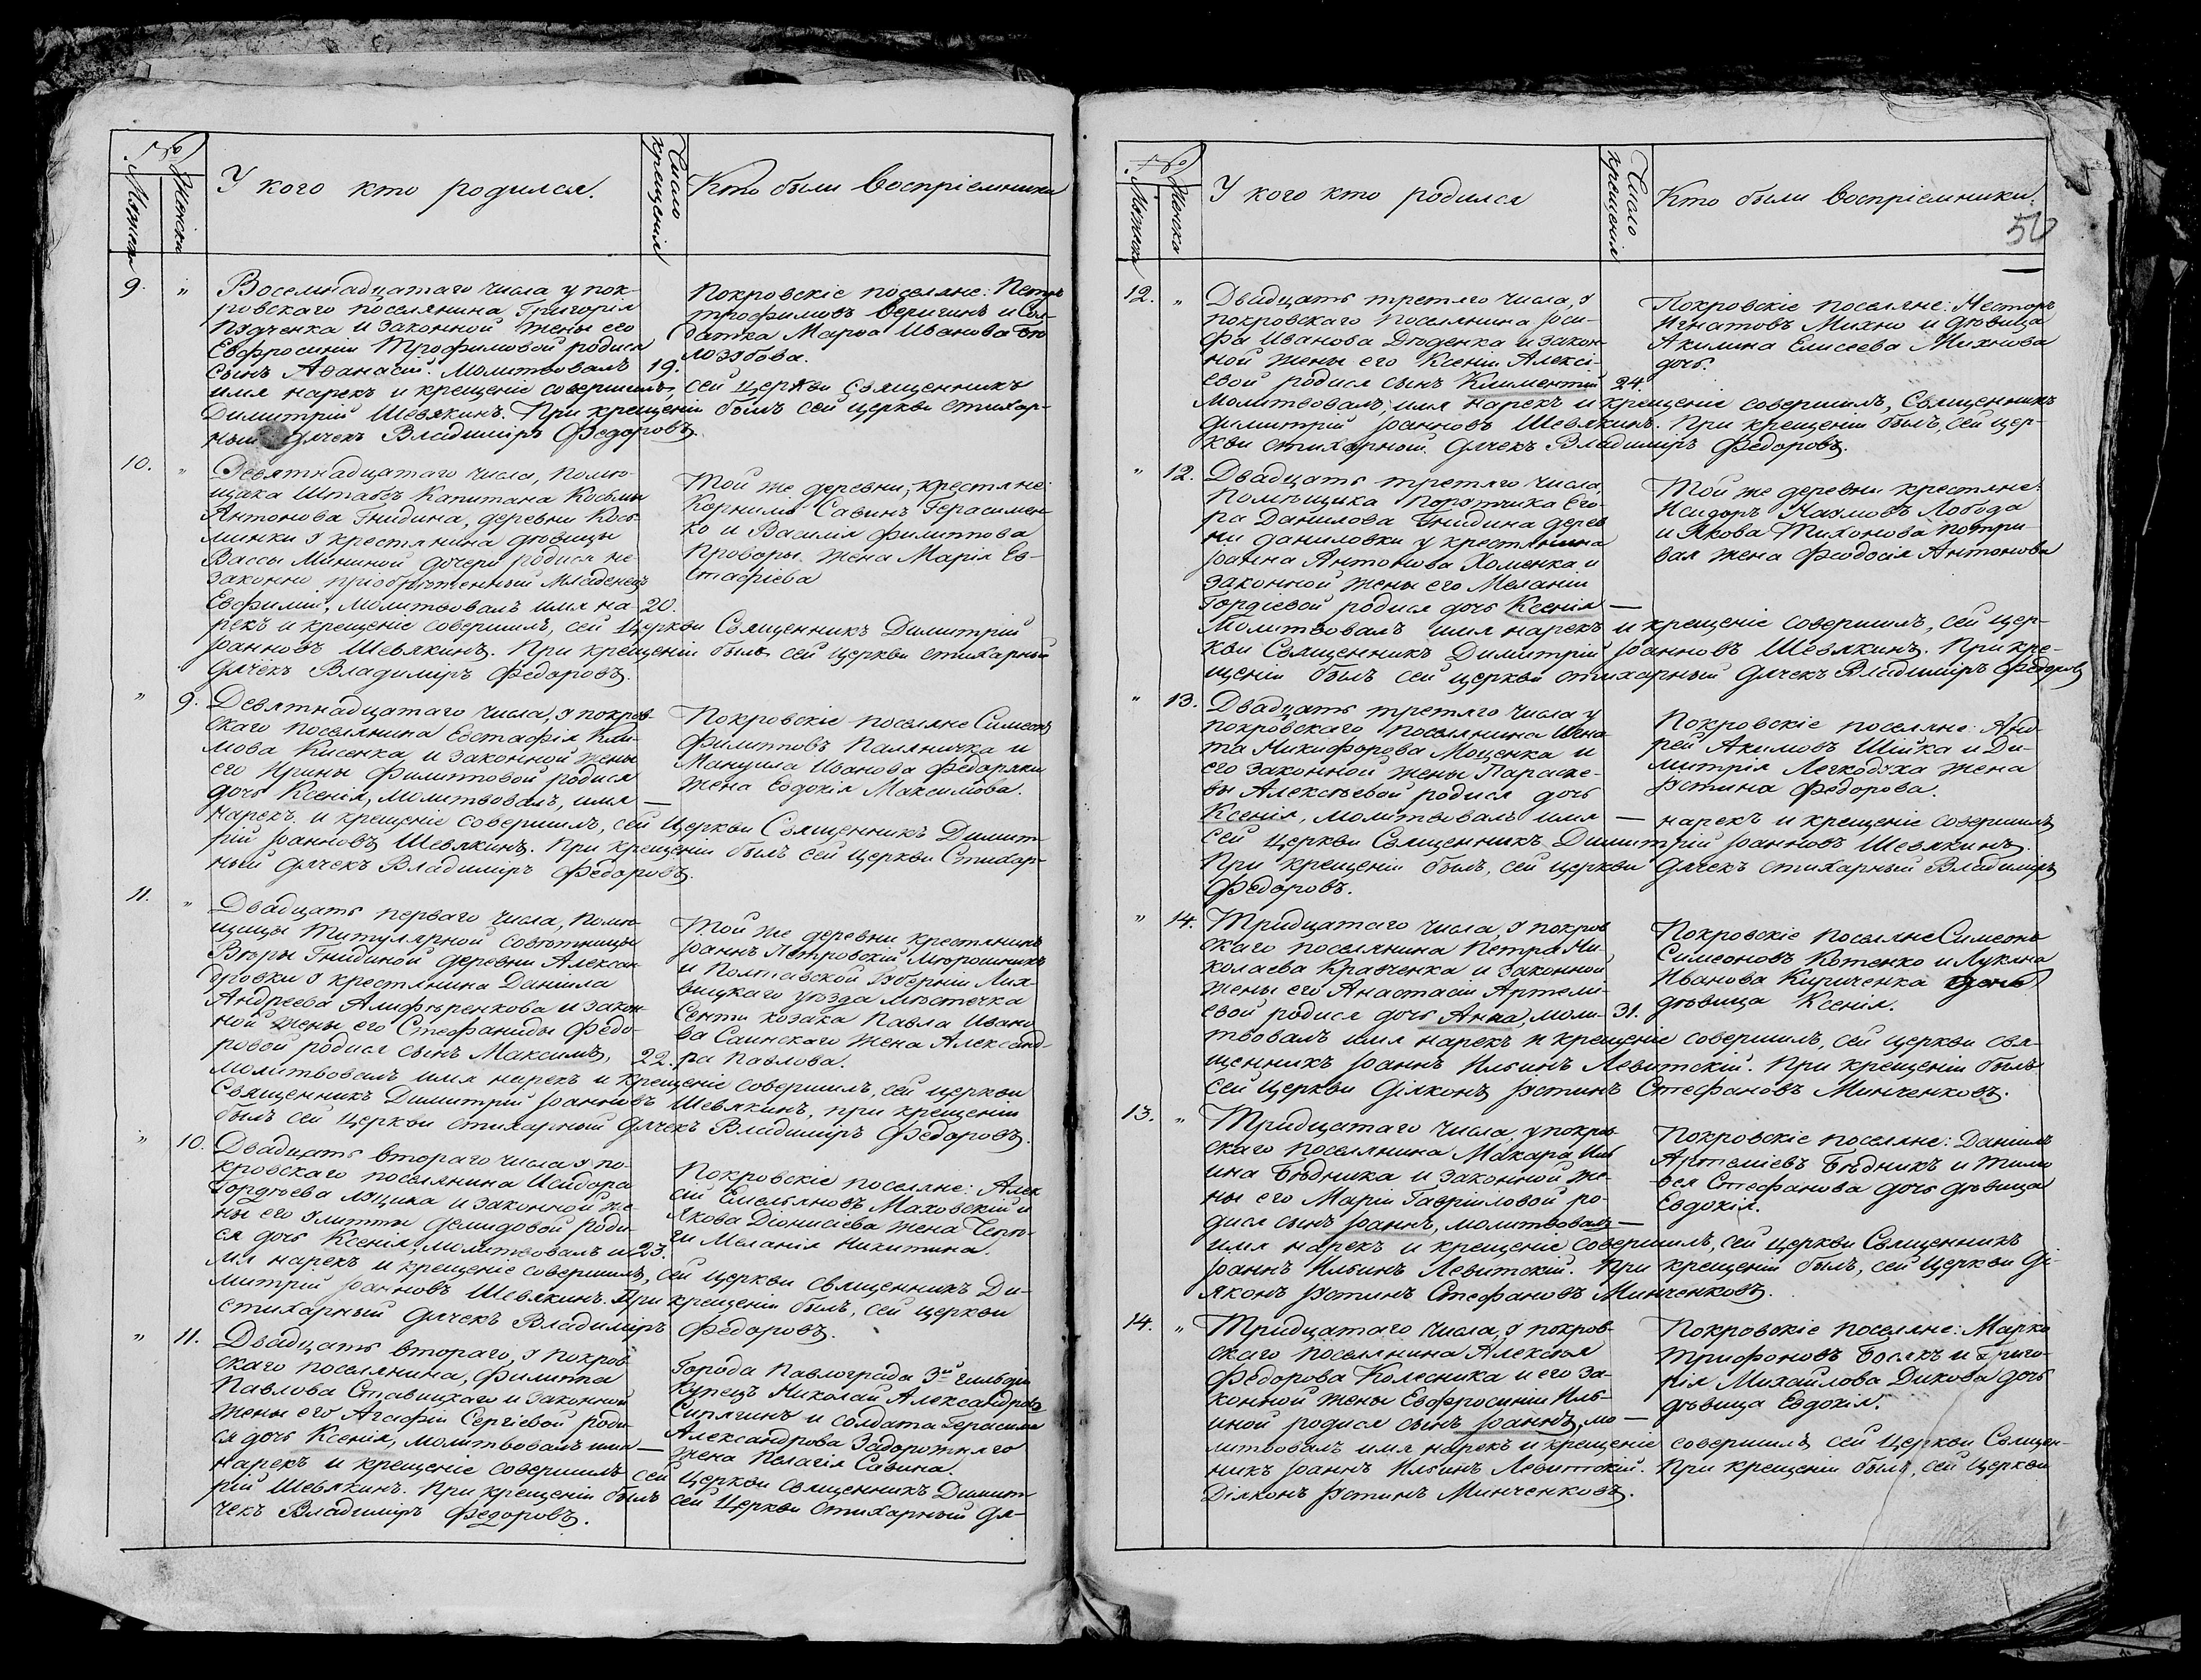 №
Мужеск
Женски
У кого кто родился.
Число
крещенія
Кто были воспріемники
9. „ Восемнадцатаго числа у пок-
ровскаго поселянина Григорія
законной жены его
Евфросиніи Трофимовой родился
сынъ Аѳанасій. Молитвовалъ 19.
имя нарекъ и крещеніе совершилъ, сей церкви Священникъ
Димитрій Шевякинъ. При крещеніи былъ сей церкви стихар-
ный дячекъ Владиміръ Федоровъ.
Покровскіе поселяне: Петръ
Трофимовъ Веригинъ и Сол-
датка Марѳа Иванова Бѣ
лозубова.
10. „ Девятнадцатаго числа, помѣ-
щика Штабсъ Капитана Козьмы
Антонова Гнидина, деревни Козь-
минки у крестьянина дѣвицы
Вассы Мининой дочери родился не
законно пріобрѣтенный младенецъ
Евфимій, молитвовалъ имя на- 20.
рекъ и крещеніе совершилъ, сей церкви Священникъ Димитрій
Іоанновъ Шевякинъ. При крещеніи былъ сей церкви стихарный
дячекъ Владиміръ Федоровъ.
Той же деревни, крестьяне:
Корнилій Савинъ Герасимен-
ко и Василія Филиппова
Провары жена Марія Ев-
стафіева
„ 9. Девятнадцатаго числа, у покров-
скаго поселянина Евстафія Кли-
мова Кисенка и законной жены
его Ирины Филипповой родися
дочь Ксенія, молитвовалъ, имя —
нарекъ и крещеніе совершилъ, сей церкви Священникъ Димит-
рій Іоанновъ Шевякинъ. При крещеніи былъ сей церкви Стихар-
ный дячекъ Владиміръ Федоровъ.
Покровскіе поселяне Симеонъ
Филипповъ Паляничка и
Мануила Иванова Федоряки
жена Евдокія Максимова.
11. „ Двадцать перваго числа, помѣ-
щицы Титулярной совѣтницы
Вѣры Гнидиной деревни Алексан
дровки у крестьянина Даниила
Андреева Алифѣренкова и закон-
ной жены его Стефаниды Федо-
ровой родися сынъ Максимъ, 22.
молитвовалъ имя нарекъ и крещеніе совершилъ, сей церкви
Священникъ Димитрій Іоанновъ Шевякинъ, при крещеніи
былъ сей церкви стихарный дячекъ Владиміръ Федоровъ.
Той же деревни крестьянинъ
Іоаннъ Петровскій Мѣрошникъ
и Полтавской Губерніи Лих-
вицкаго уѣзда мѣстечка
Сенчи козака Павла Ивано
ва Саинскаго жена Александ-
ра Павлова.
„ 10. Двадцать втораго числа у по-
кровскаго поселянина Исидора
Гордѣева Луцика и законной же-
ны его Улитты Демидовой роди-
ся дочь Ксенія, молитвовалъ и- 23.
мя нарекъ и крещеніе совершилъ, сей церкви священникъ Ди-
митрій Іоанновъ Шевякинъ. При крещеніи былъ, сей церкви
стихарный дячекъ Владиміръ Федоровъ.
Покровскіе поселяне: Алек
сій Емельяновъ Маховскій и
Якова Діонисіева жена
Меланія Никитина.
„ 11. Двадцать втораго, у покров
скаго поселянина, Филиппа
Павлова Ставицкаго и законной
жены его Агафіи Сергіевой роди-
ся дочь Ксенія, молитвовалъ имя —
нарекъ и крещеніе совершилъ сей церкви священникъ Димит
рій Шевякинъ. При крещеніи былъ сей церкви стихарный дя-
чекъ Владиміръ Федоровъ.
Города Павлограда 3й гильдіи
Купецъ Николай Александровъ
Сипягинъ и солдата Герасима
Александрова Задорожняго
жена Пелагія Савина.
№
Мужеска
Женска
У кого кто родился
Число
крещенія
Кто были воспріемники.
50
12. „ Двадцать третяго числа, у
покровскаго поселянина Іоси-
фа Иванова Дюденка и закон
ной жены его Ксеніи Алексі-
евой родися сынъ Климентій 24.
молитвовалъ, имя нарекъ и крещеніе совершилъ, Священникъ
Димитрій Іоанновъ Шевякинъ. При крещеніи былъ, сей цер-
кви стихарной. Дячекъ Владиміръ Федоровъ.
Покровскіе поселяне: Несторъ
Игнатовъ Михно и дѣвица
Акилина Елисеева Михнова
дочь.
„ 12. Двадцать третяго числа,
Помѣщика Поручика Его-
ра Данилова Гнидина дерев
ни Даниловки у крестянина
Іоанна Антонова Хоменка и
законной жены его Меланіи
Гордіевой родися дочь Ксенія —
Молитвовалъ имя нарекъ и крещеніе совершилъ, сей цер-
кви Священникъ Димитрій Іоанновъ Шевякинъ. При кре-
щеніи былъ сей церкви стихарный дячекъ Владиміръ Федоровъ
Той же деревни крестяне:
Исидоръ Наумовъ Лобода
и Якова Тихонова
жена Феодосія Антонова
„ 13. Двадцать третяго числа у
покровскаго поселянина Игна-
та Никифорова Моценка и
его законной жены Параске-
вы Алексѣевой родися дочь
Ксенія, молитвовалъ имя — нарекъ и крещеніе совершилъ
сей церкви Священникъ Димитрій Іоанновъ Шевякинъ.
При крещеніи былъ, сей церкви дячекъ стихарный Владиміръ
Федоровъ.
Покровскіе поселяне: Анд-
рей Акимовъ Шійка и Ди-
митрія Легкодуха жена
Іустина Федорова.
„ 14. Тридцатаго числа, у покров
скаго поселянина Петра Ни-
колаева Кравченка и законной
жены его Анастасіи Артемі-
евой родися дочь Анна, моли- 31.
твовалъ имя нарекъ и крещеніе совершилъ, сей церкви свя-
щенникъ Іоаннъ Ильинъ Левитскій. При крещеніи былъ
сей церкви Діяконъ Іустинъ Стефановъ Минченковъ.
Покровскіе поселяне Симеонъ
Симеоновъ Котенко и Лукіяна
Иванова Кириченка дочь
дѣвица Ксенія.
13. „ Тридцатаго числа, у покров
скаго поселянина Макара Иль
ина Бѣдника и законной же-
ны его Маріи Гавриловой ро-
дися сынъ Іоаннъ, молитвовалъ —
имя нарекъ и крещеніе совершилъ, сей церкви Священникъ
Іоаннъ Ильинъ Левитскій. При крещеніи былъ, сей церкви Ді-
яконъ Іустинъ Стефановъ Минченковъ.
Покровскіе поселяне: Даніилъ
Артеміевъ Бѣдникъ и Тимо
ѳея Стефанова дочь дѣвица
Евдокія.
14. „ Тридцатаго числа, у покров-
скаго поселянина Алексѣя
Федорова Колесника и его за-
конной жены Евфросиніи Иль-
иной родися сынъ Іоаннъ, мо —
литвовалъ имя нарекъ и крещеніе совершилъ сей церкви Священ-
никъ Іоаннъ Ильинъ Левитскій. При крещеніи былъ, сей церкви
Діяконъ Іустинъ Минченковъ.
Покровскіе поселяне: Марко
Трифоновъ Босякъ и Григо-
рія Михайлова Дикова дочь
дѣвица Евдокія.